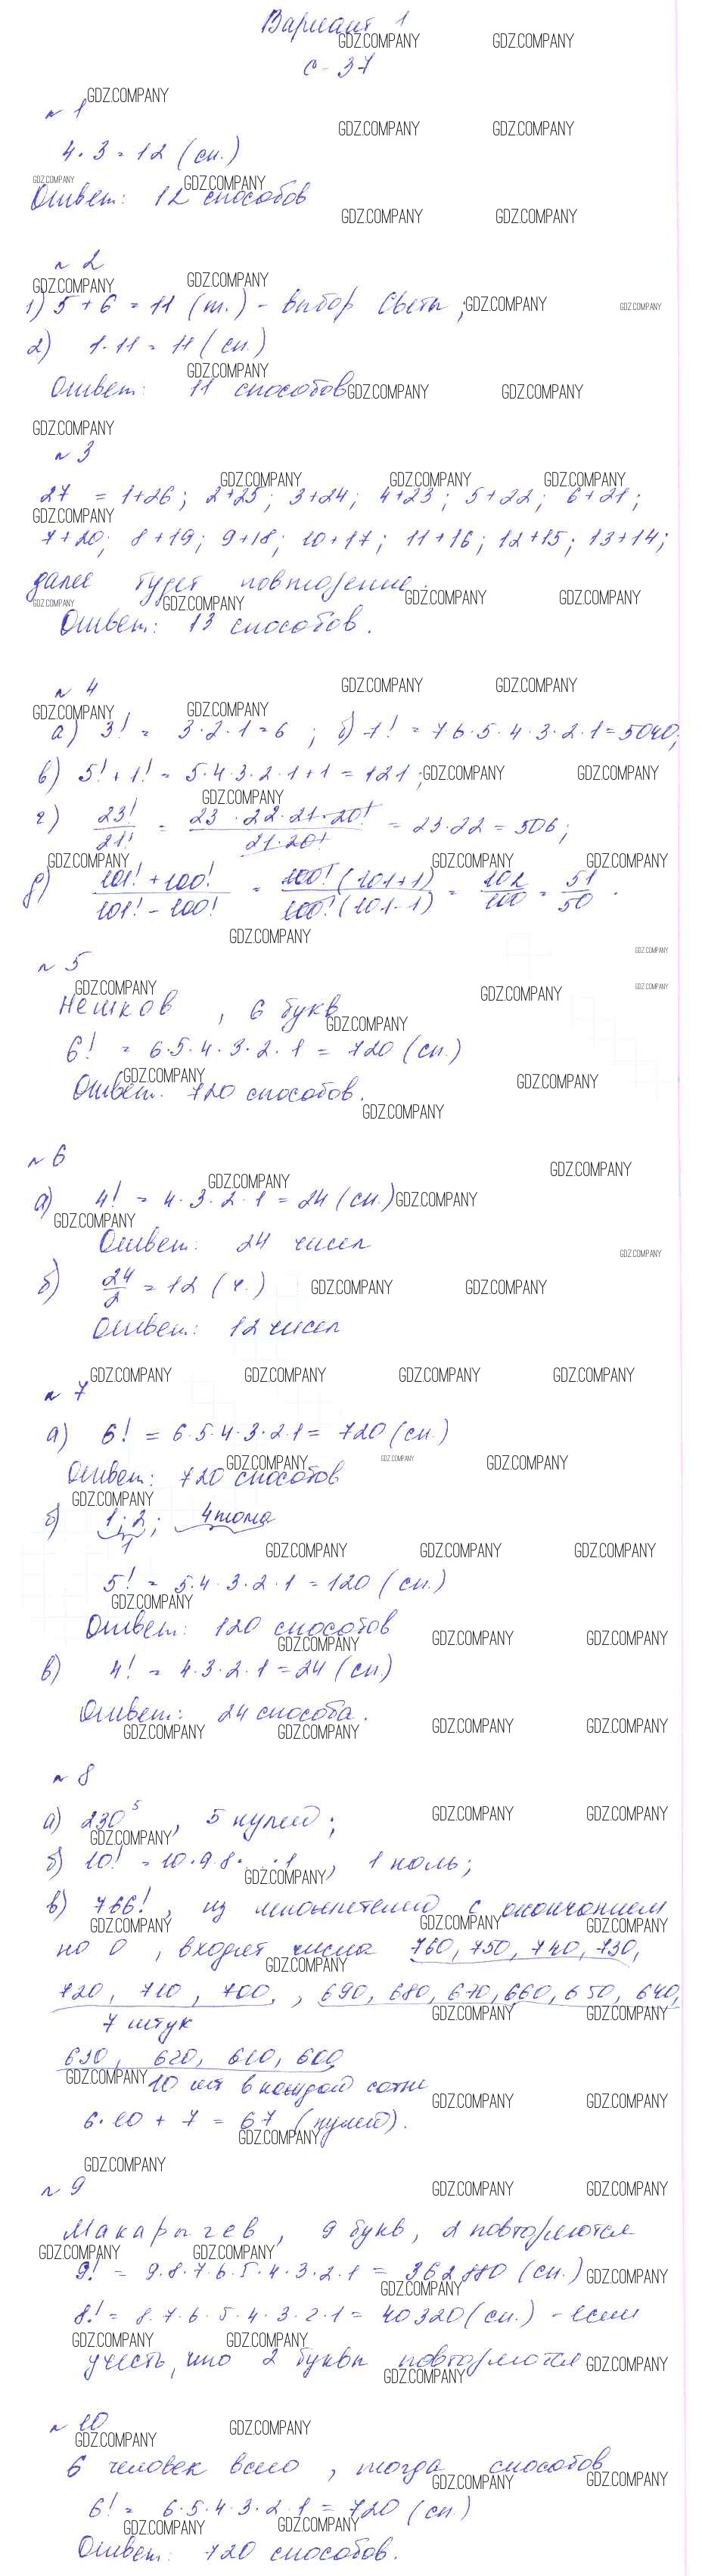 Вариант 1
С-37
№ 1
4·3=12 (сп.)
Ответ: 12 способов
№ 2
1) 5+6=11 (т.) - выбор Светы;
2) 1·11=11 (сп.)
Ответ: 11 способов
№ 3
27 = 1+26; 2+25; 3+24; 4+23; 5+22; 6+21;
7+20; 8+19; 9+18; 10+17; 11+16; 12+15; 13+14;
далее будет повторение.
Ответ: 13 способов.
№ 4
а) 3! = 3·2·1=6; б) 7! = 7·6·5·4·3·2·1=5040;
в) 5!+1! = 5·4·3·2·1+1=121;
г) 23!/21! = 23·22·21·20!/21·20! = 23·22=506;
д) 101!+100!/101!-100! = 100!(101+1)/100!(101-1) = 102/100 = 51/50.
№ 5
Нешков, 6 букв
6! = 6·5·4·3·2·1 = 720 (сп.)
Ответ. 720 способов.
№ 6
а) 4! = 4·3·2·1 = 24 (сп.)
Ответ: 24 чисел
б) 24/2 = 12 (ч.)
Ответ: 12 чисел
№ 7
а) 6! = 6·5·4·3·2·1 = 720 (сп.)
Ответ: 720 способов
б) 1; 2; 4 тома
1
5! = 5·4·3·2·1=120 (сп.)
Ответ: 120 способов
в) 4! = 4·3·2·1=24 (сп.)
Ответ: 24 способа.
№ 8
а) 230⁵, 5 нулей;
б) 10! = 10·9·8·...·1, 1 ноль;
в) 766!, из множителей с окончанием
но 0, входят числа 760, 750, 740, 730,
720, 710, 700, , 690, 680, 670, 660, 650, 640,
7 штук
630, 620, 610, 600
10 шт в каждой сотне
6·10+7=67 (нулей).
№ 9
Макарычев, 9 букв, 2 повторяются
9! = 9·8·7·6·5·4·3·2·1 = 362880 (сп.)
8! = 8·7·6·5·4·3·2·1=40320 (сп.) - если
учесть, что 2 буквы повторяются
№ 10
6 человек всего, тогда способов
6! = 6·5·4·3·2·1=720 (сп.)
Ответ: 720 способов.
GDZ.COMPANY